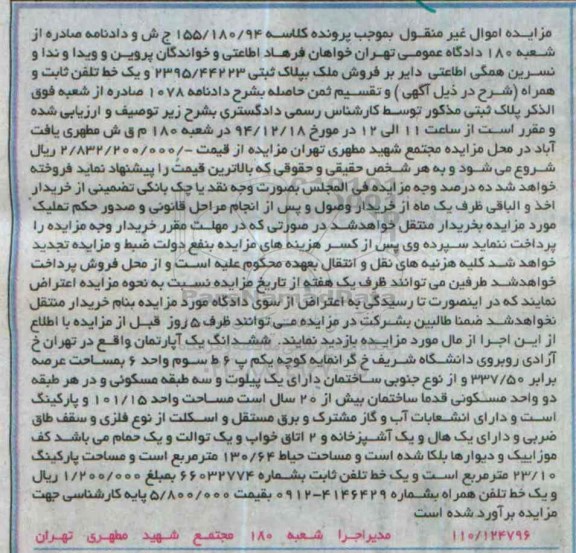 مزایده اموال غیر منقول بموجب پرونده کلاسه ۱۵۵/۱۸۰/۹۴ ج ش و دادنامه صادره از
شعبه ۱۸۰ دادگاه عمومی تهران خواهان فرهاد اطاعتی و خواندگان پروین و ویدا و ندا و
نسرین همگی اطاعتی دایر بر فروش ملک بپلاک ثبتی ۲۳۹۵/۴۴۲۲۳ و یک خط تلفن ثابت و
همراه (شرح در ذیل آگهی) و تقسیم ثمن حاصله بشرح دادنامه ۱۰۷۸ صادره از شعبه فوق
الذکر پلاک ثبتی مذکور توسط کارشناس رسمی دادگستری بشرح زیر توصیف و ارزیابی شده
و مقرر است از ساعت ۱۱ الی ۱۲ در مورخ ۹۴/۱۲/۱۸ در شعبه ۱۸۰ م ق ش مطهری یافت
آباد در محل مزایده مجتمع شهید مطهری تهران مزایده از قیمت -/۲/۸۳۲/۲۰۰/۰۰۰ ریال
شروع می شود و به هر شخص حقیقی و حقوقی که بالاترین قیمت را پیشنهاد نماید فروخته
خواهد شد ده درصد وجه مزایده فی المجلس بصورت وجه نقد یا چک بانکی تضمینی از خریدار
اخذ و الباقی ظرف یک ماه از خریدار وصول و پس از انجام مراحل قانونی و صدور حکم تملیک
مورد مزایده بخریدار منتقل خواهدشد در صورتی که در مهلت مقرر خریدار وجه مزایده را
پرداخت ننماید سپرده وی پس از کسر هزینه های مزایده بنفع دولت ضبط و مزایده تجدید
خواهد شد کلیه هزنیه های نقل و انتقال بعهده محکوم علیه است و از محل فروش پرداخت
خواهدشد طرفین می توانند ظرف یک هفته از تاریخ مزایده نسبت به نحوه مزایده اعتراض
نمایند که در اینصورت تا رسیدگی به اعتراض از سوی دادگاه مورد مزایده بنام خریدار منتقل
نخواهدشد ضمنا طالبین بشرکت در مزایده می توانند ظرف ۵ روز قبل از مزایده با اطلاع
از این اجرا از مال مورد مزایده بازدید نمایند. ششدانگ یک آپارتمان واقع در تهران خ
آزادی روبروی دانشگاه شریف خ گرانمایه کوچه یکم پ ۶ ط سوم واحد ۶ بمساحت عرصه
برابر ۳۳۷/۵۰ و از نوع جنوبی ساختمان دارای یک پیلوت و سه طبقه مسکونی و در هر طبقه
دو واحد مسکونی قدما ساختمان بیش از ۲۰ سال است مساحت واحد ۱۰۱/۱۵ و پارکینگ
است و دارای انشعابات آب و گاز مشترک و برق مستقل و اسکلت از نوع فلزی و سقف طاق
ضربی و دارای یک هال و یک آشپزخانه و ۲ اتاق خواب و یک توالت و یک حمام می باشد کف
موزاییک و دیوارها بلکا شده است و مساحت حیاط ۱۳۰/۶۴ مترمربع است و مساحت پارکینگ
۲۳/۱۰ مترمربع است و یک خط تلفن ثابت بشماره ۶۶۰۳۲۷۷۴ بمبلغ ۱/۲۰۰/۰۰۰ ریال
و یک خط تلفن همراه بشماره ۴۱۴۶۴۲۹-۰۹۱۲ بقیمت ۵/۸۰۰/۰۰۰ پایه کارشناسی جهت
مزایده برآورد شده است
۱۱۰/۱۲۴۷۹۶ مدیراجرا شعبه ۱۸۰ مجتمع شهید مطهری تهران